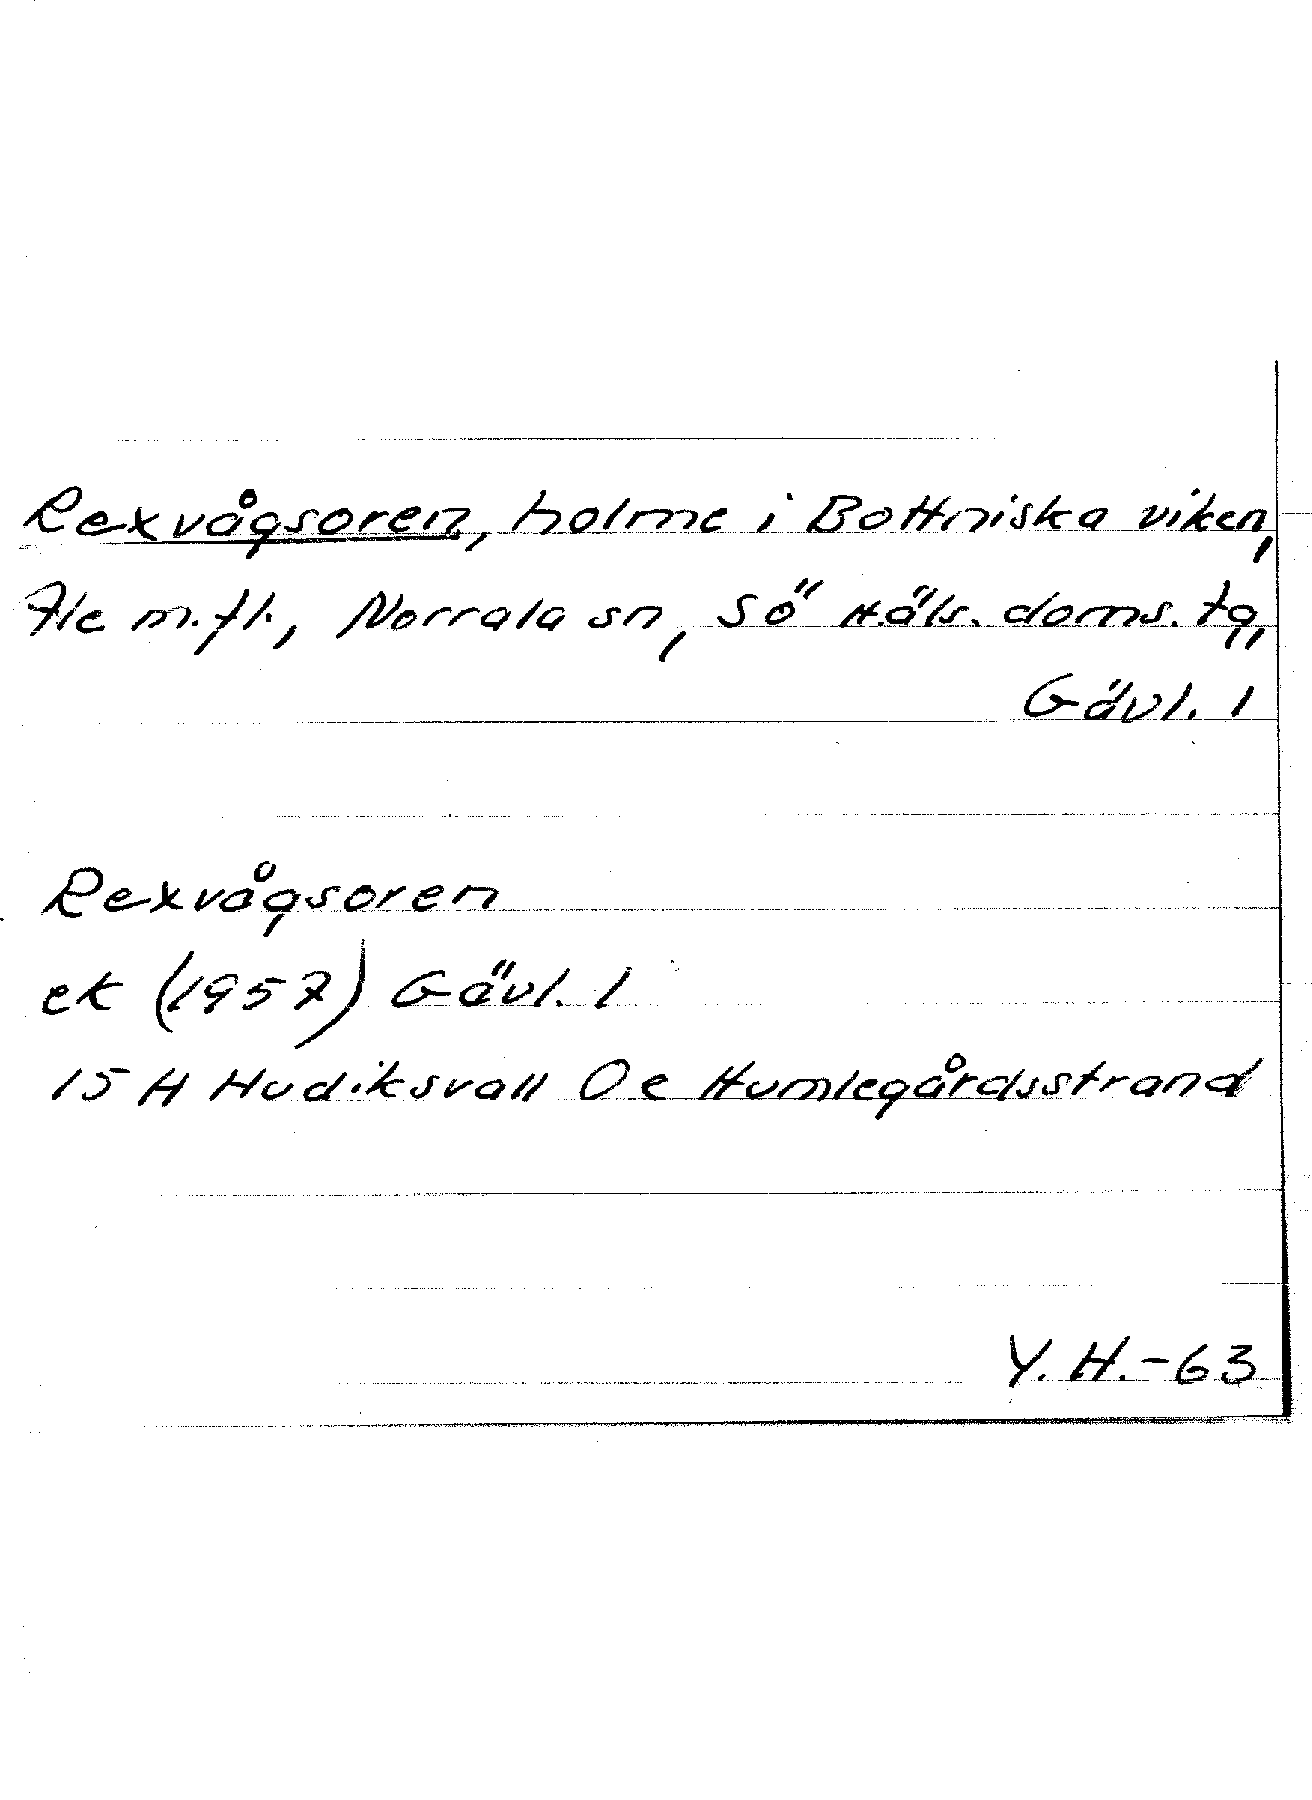 Rexvågsoren, holme i Bottniska viken,
Ale m.fl., Norrala sn, Sö Häls. doms. tg,
Gävl. l
Rexvågsoren
ek (1957) Gävl. l
15 H Hudiksvall 0e Humlegårdsstrand
Y. H. -63